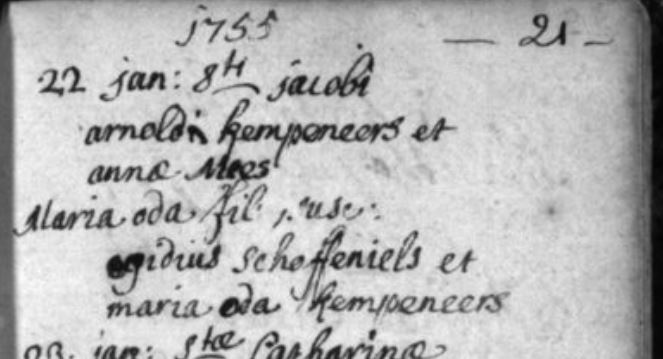 1755 — 21 —
22 jan: Sti jacobi
arnoldi kempeneers et
annæ Mees
Maria oda fil: susc:
egidius scheffeniels et
maria oda kempeneers
23 jan: Stæ Catharinæ